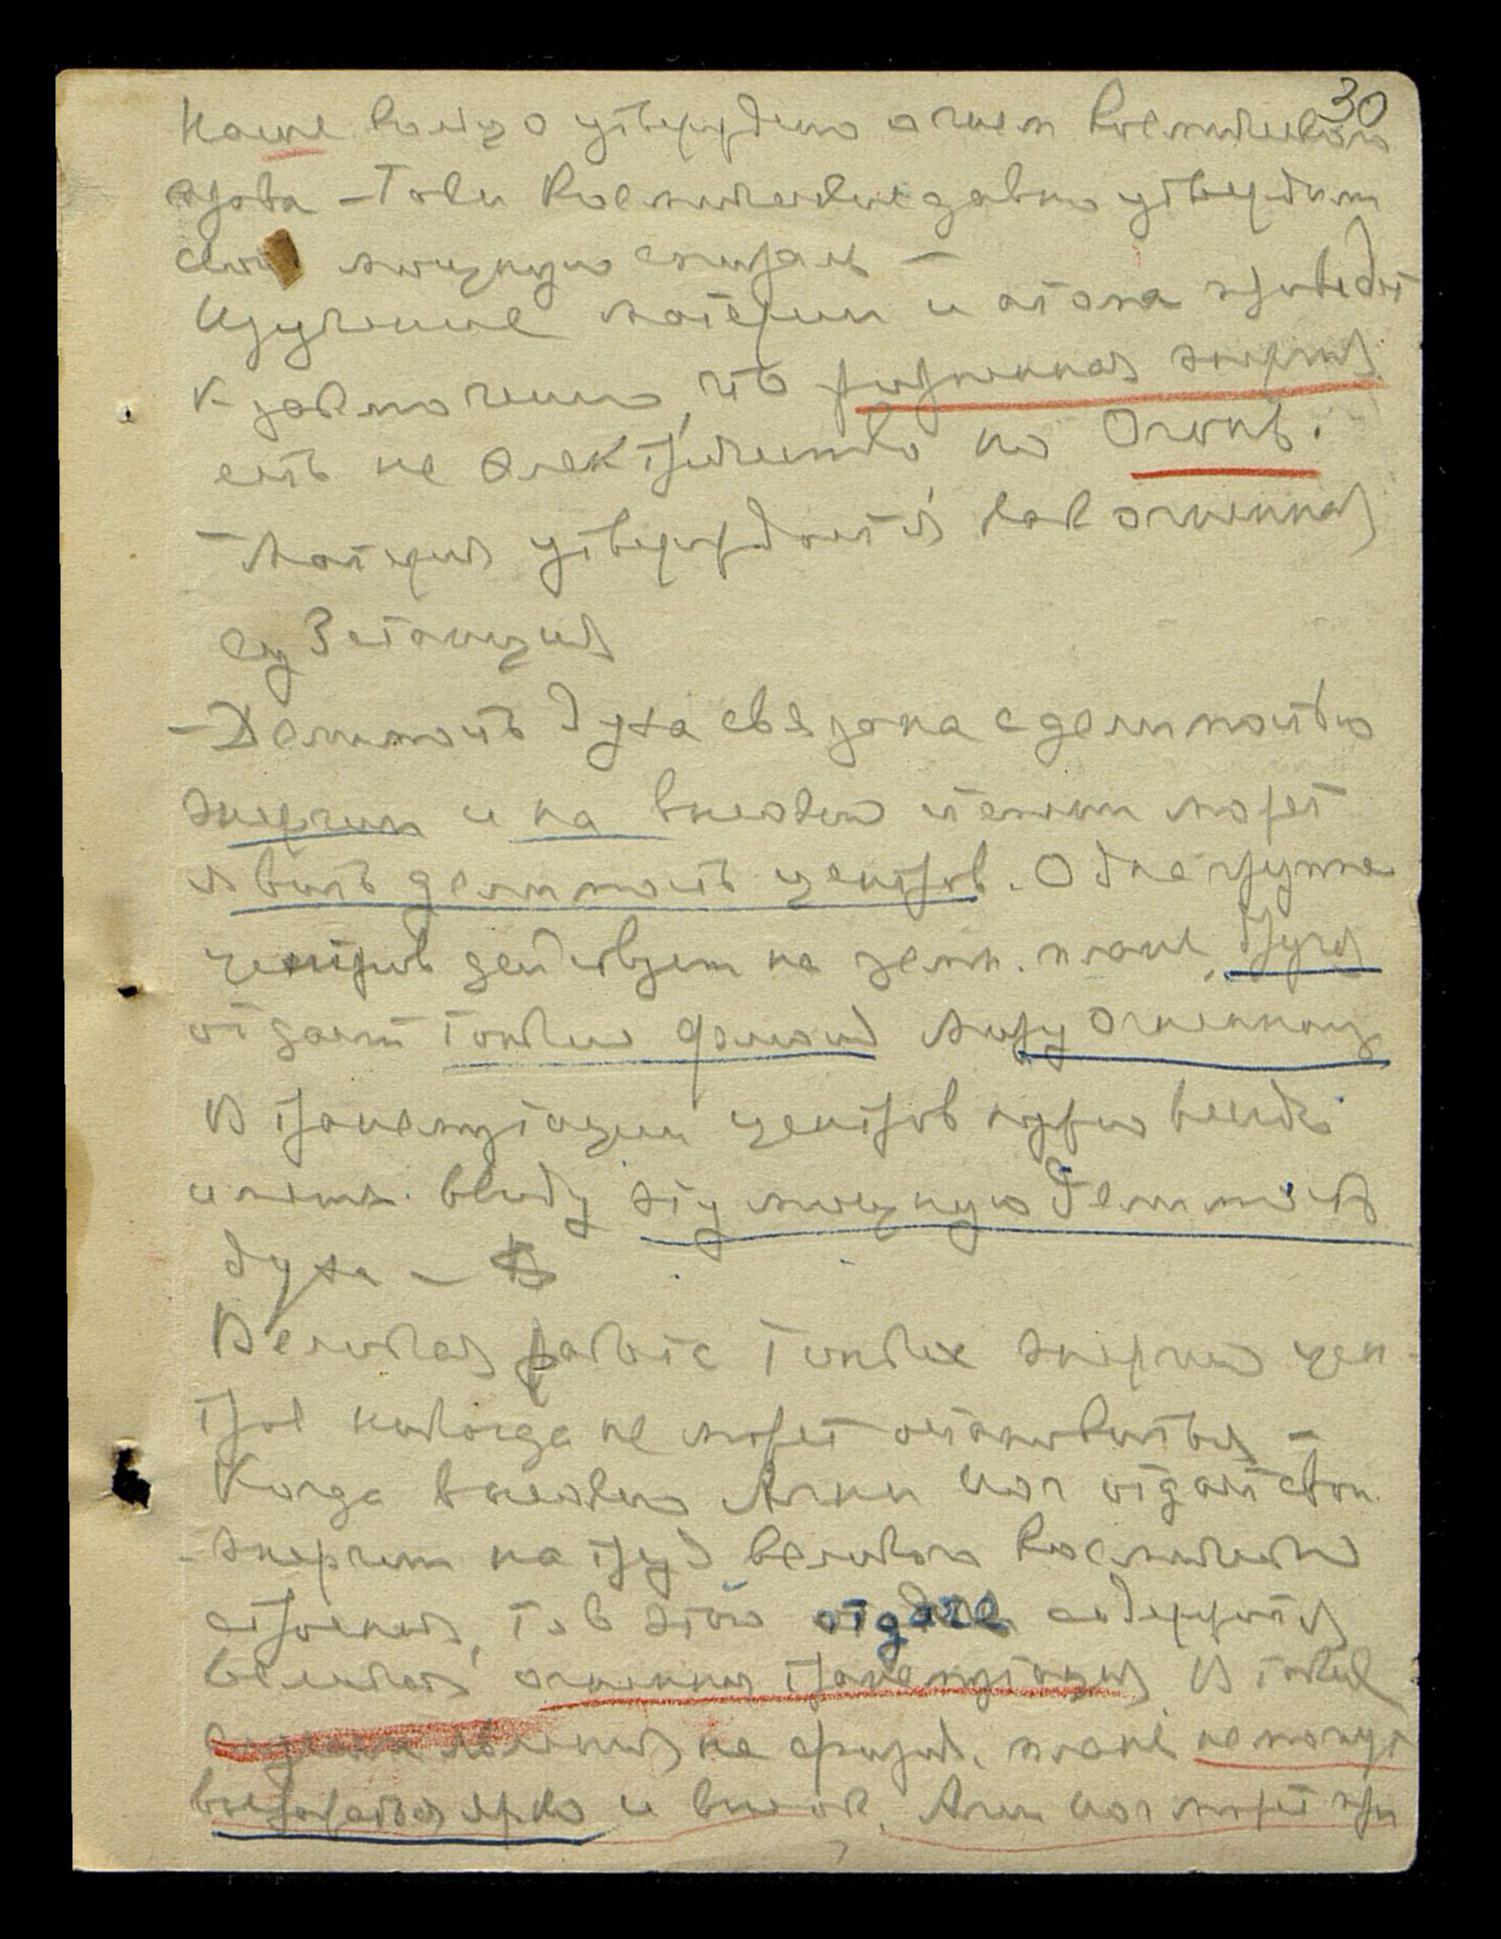 30
Наше кольцо утверждено огнем Космического
права – Так Космическое давно утвердили
свою мощную спираль –
Изучение материи и атома приведет
к заключению, что жизненная энергия
есть не электричество, но Огонь.
– Материя утверждается как огненная
субстанция
– Делимость духа связана с делимостью
энергии и на высокой степени может
явить делимость центров. Одна группа
центров действует на земн. плане, другая
отдает тонкие флюиды миру огненному
В трансмутации центров нужно всегда
иметь ввиду эту мощную делимость
духа –
Великая работа тонких энергий цен-
тров никогда не может остановиться –
Когда высокий Агни Йог отдает свои
энергии на труд великого Космического
строения, то в этой отдаче содержится
великая огненная трансмутация. В таких
случаях явления на физич. плане не могут
выражаться ярко и высок. Агни Йог может при